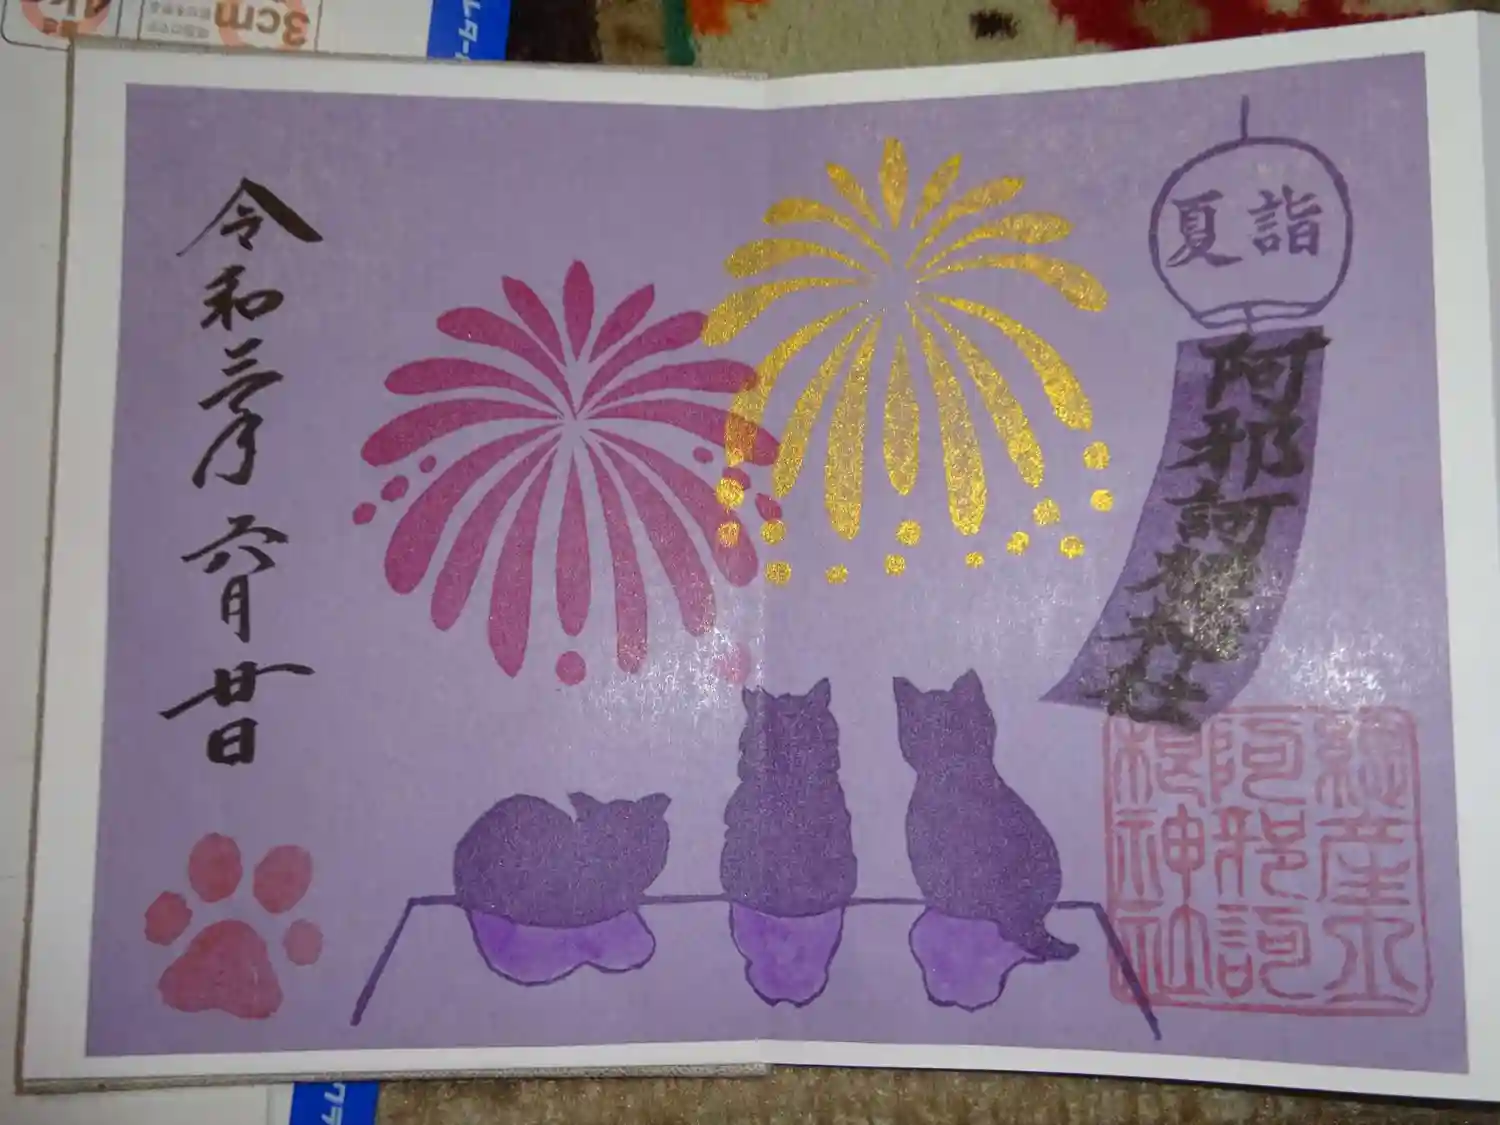 夏詣
阿邪訶根神社
總産土
阿邪訶
根神社
令和三年
六月
廿日
3cm
レター